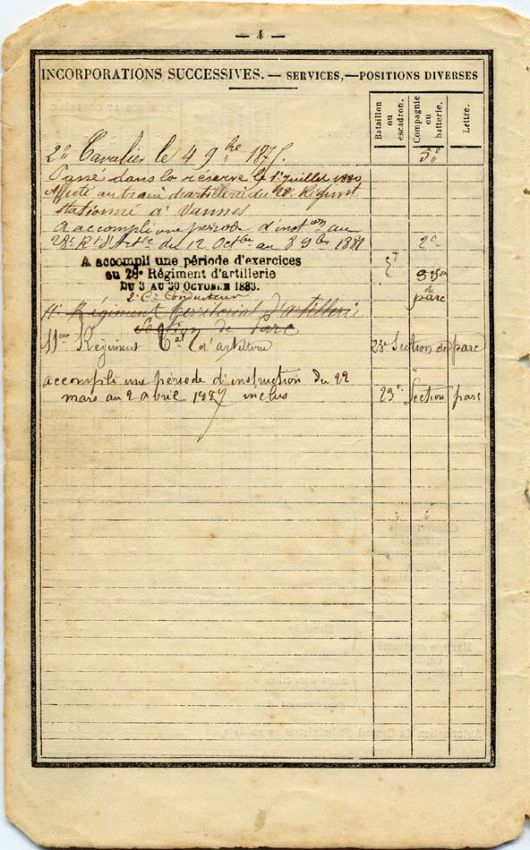 — 4 —
INCORPORATIONS SUCCESSIVES. — SERVICES,—POSITIONS DIVERSES
Bataillon ou escadron.
Compagnie ou batterie.
Lettre.
2e Cavalier le 4 9bre 1875. 5e
Passé dans la réserve le 1er Juillet 1880
Affecté au train d'artillerie du 28e Régiment
stationné à Vannes
A accompli une période d'inston au
28e Rt d'Artie du 12 Octbre au 8 9bre 1881 2e
A accompli une période d'exercices
au 28e Régiment d'artillerie
DU 3 AU 30 OCTOBRE 1883.
2e Cr Conducteur
parc
11e Régiment territorial d'artillerie
Section de Parc
11eme Régiment Cal d'artillerie 23e Section de parc
accompli une période d'instruction du 22
mars au 2 avril 1887 inclus 23e Section parc